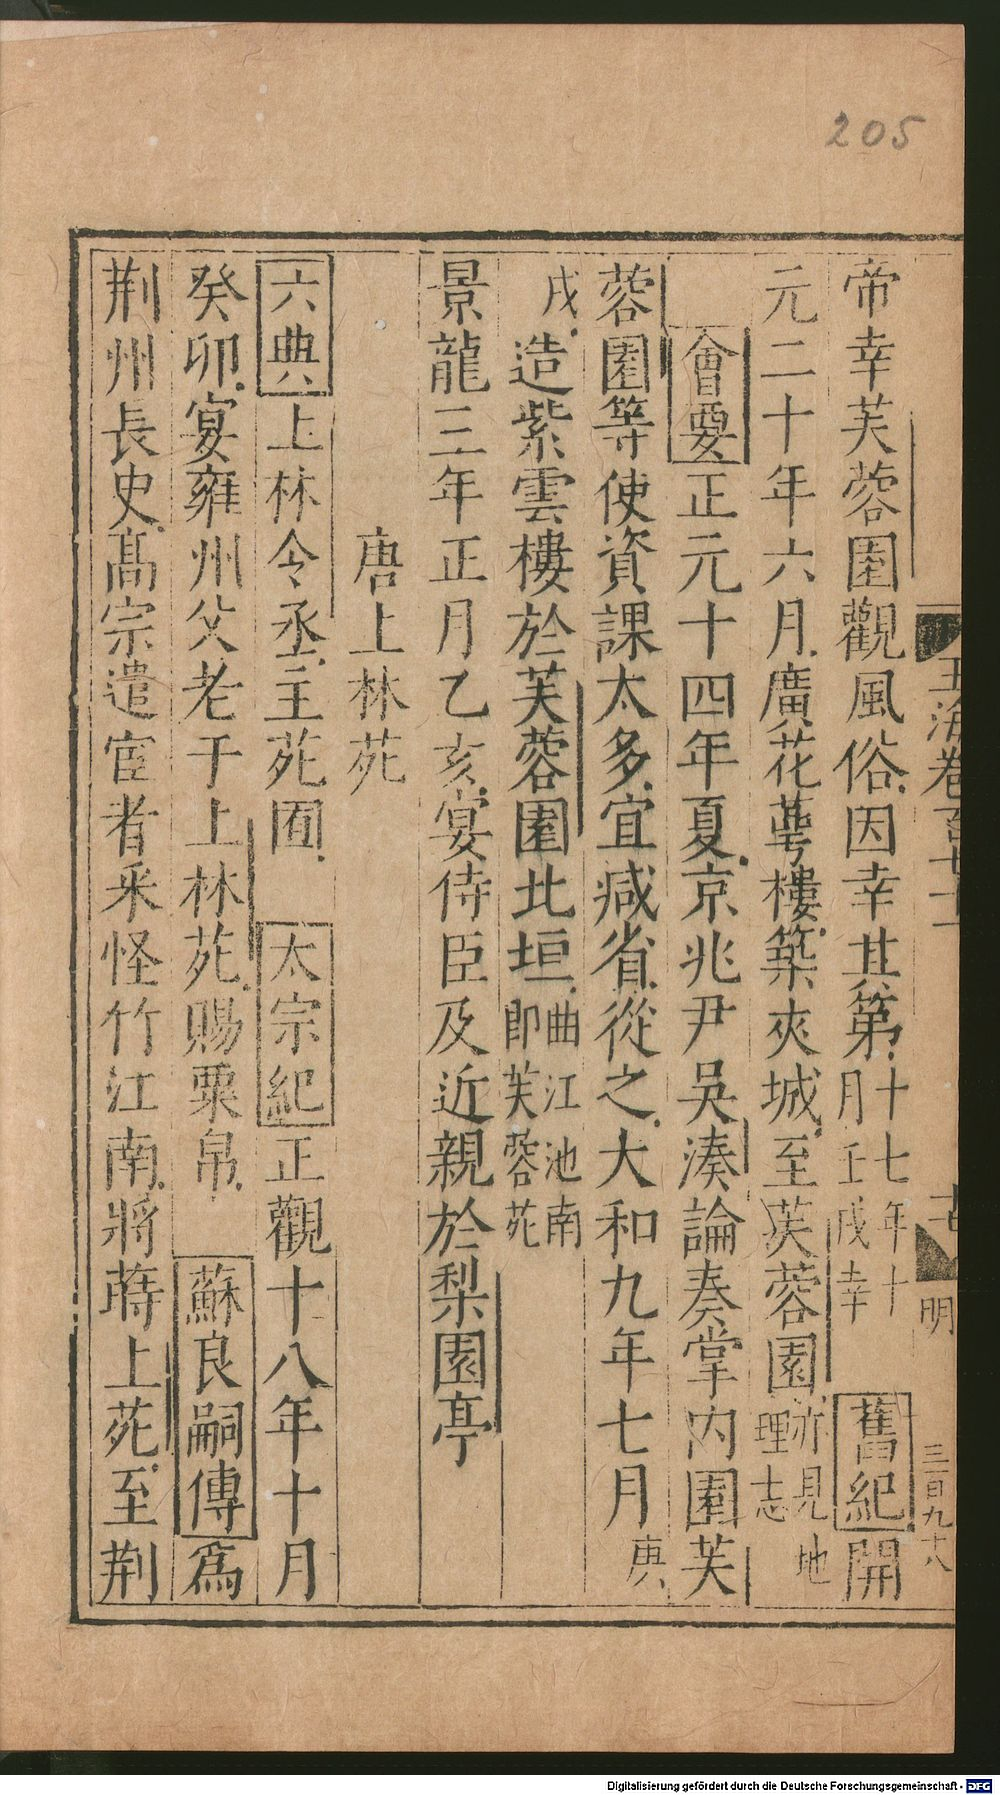 205
玉海卷百七十一
十七
明
三百九十八
帝幸芙蓉園觀風俗因幸其第十七年十月壬戌幸舊紀開
元二十年六月廣花萼樓築夾城至芙蓉園亦見地理志
會要正元十四年夏京兆尹吳湊論奏掌內園芙
蓉園等使資課太多宜減省從之大和九年七月庚
戌造紫雲樓於芙蓉園北垣曲江池南即芙蓉苑
景龍三年正月乙亥宴侍臣及近親於梨園亭
唐上林苑
六典上林令丞主苑囿 太宗紀正觀十八年十月
癸卯宴雍州父老于上林苑賜粟帛 蘇良嗣傳爲
荆州長史髙宗遣宦者采怪竹江南將蒔上苑至荆
Digitalisierung gefördert durch die Deutsche Forschungsgemeinschaft - DFG